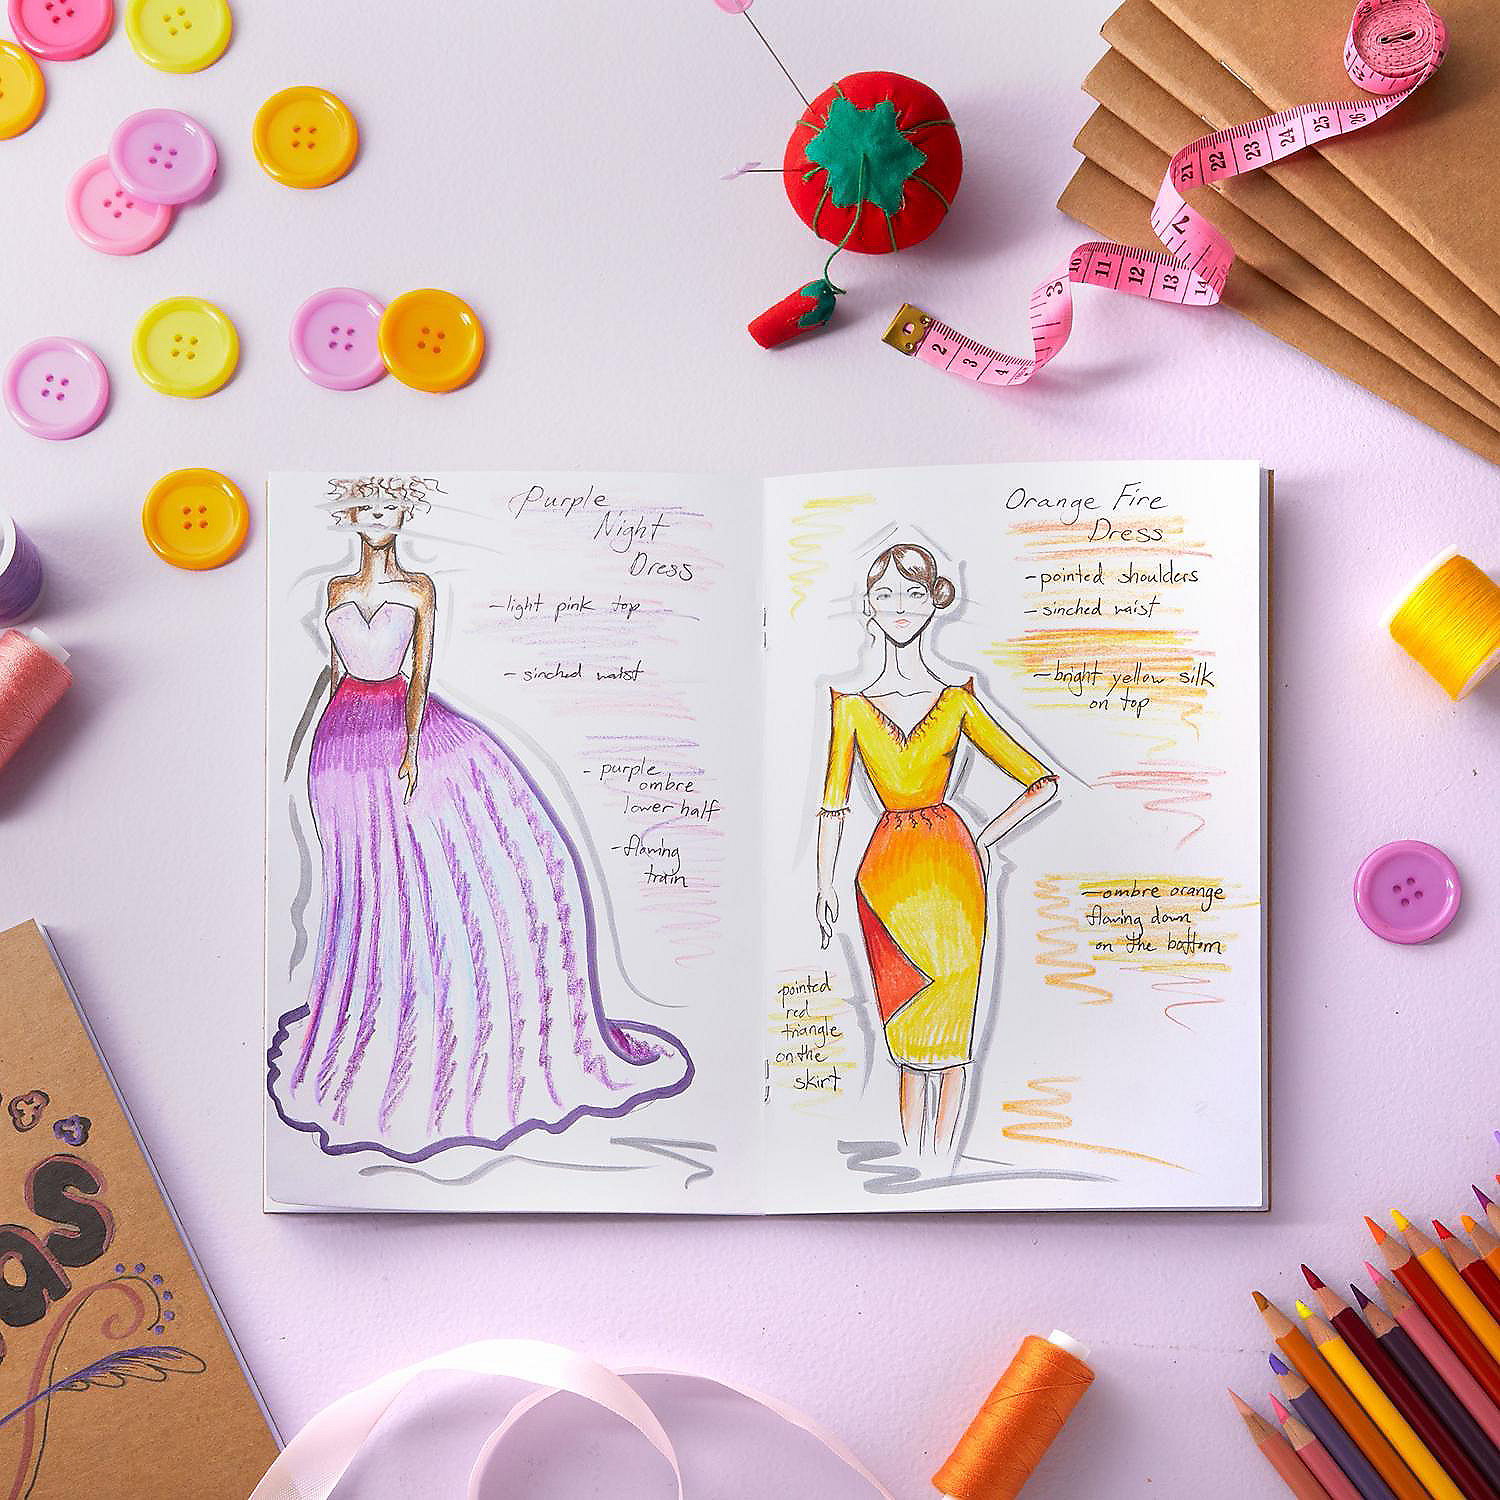 Purple
Night
Dress
-light pink top
- sinched waist
- purple
ombre
lower half
-flowing
train
Orange Fire
Dress
-pointed shoulders
-sinched waist
-bright yellow silk
on top
-ombre orange
flowing down
on the bottom
pointed
red
triangle
on the
skirt
as
2
3
4
3
10
11
12
13
14
7
21
22
23
24
25
26